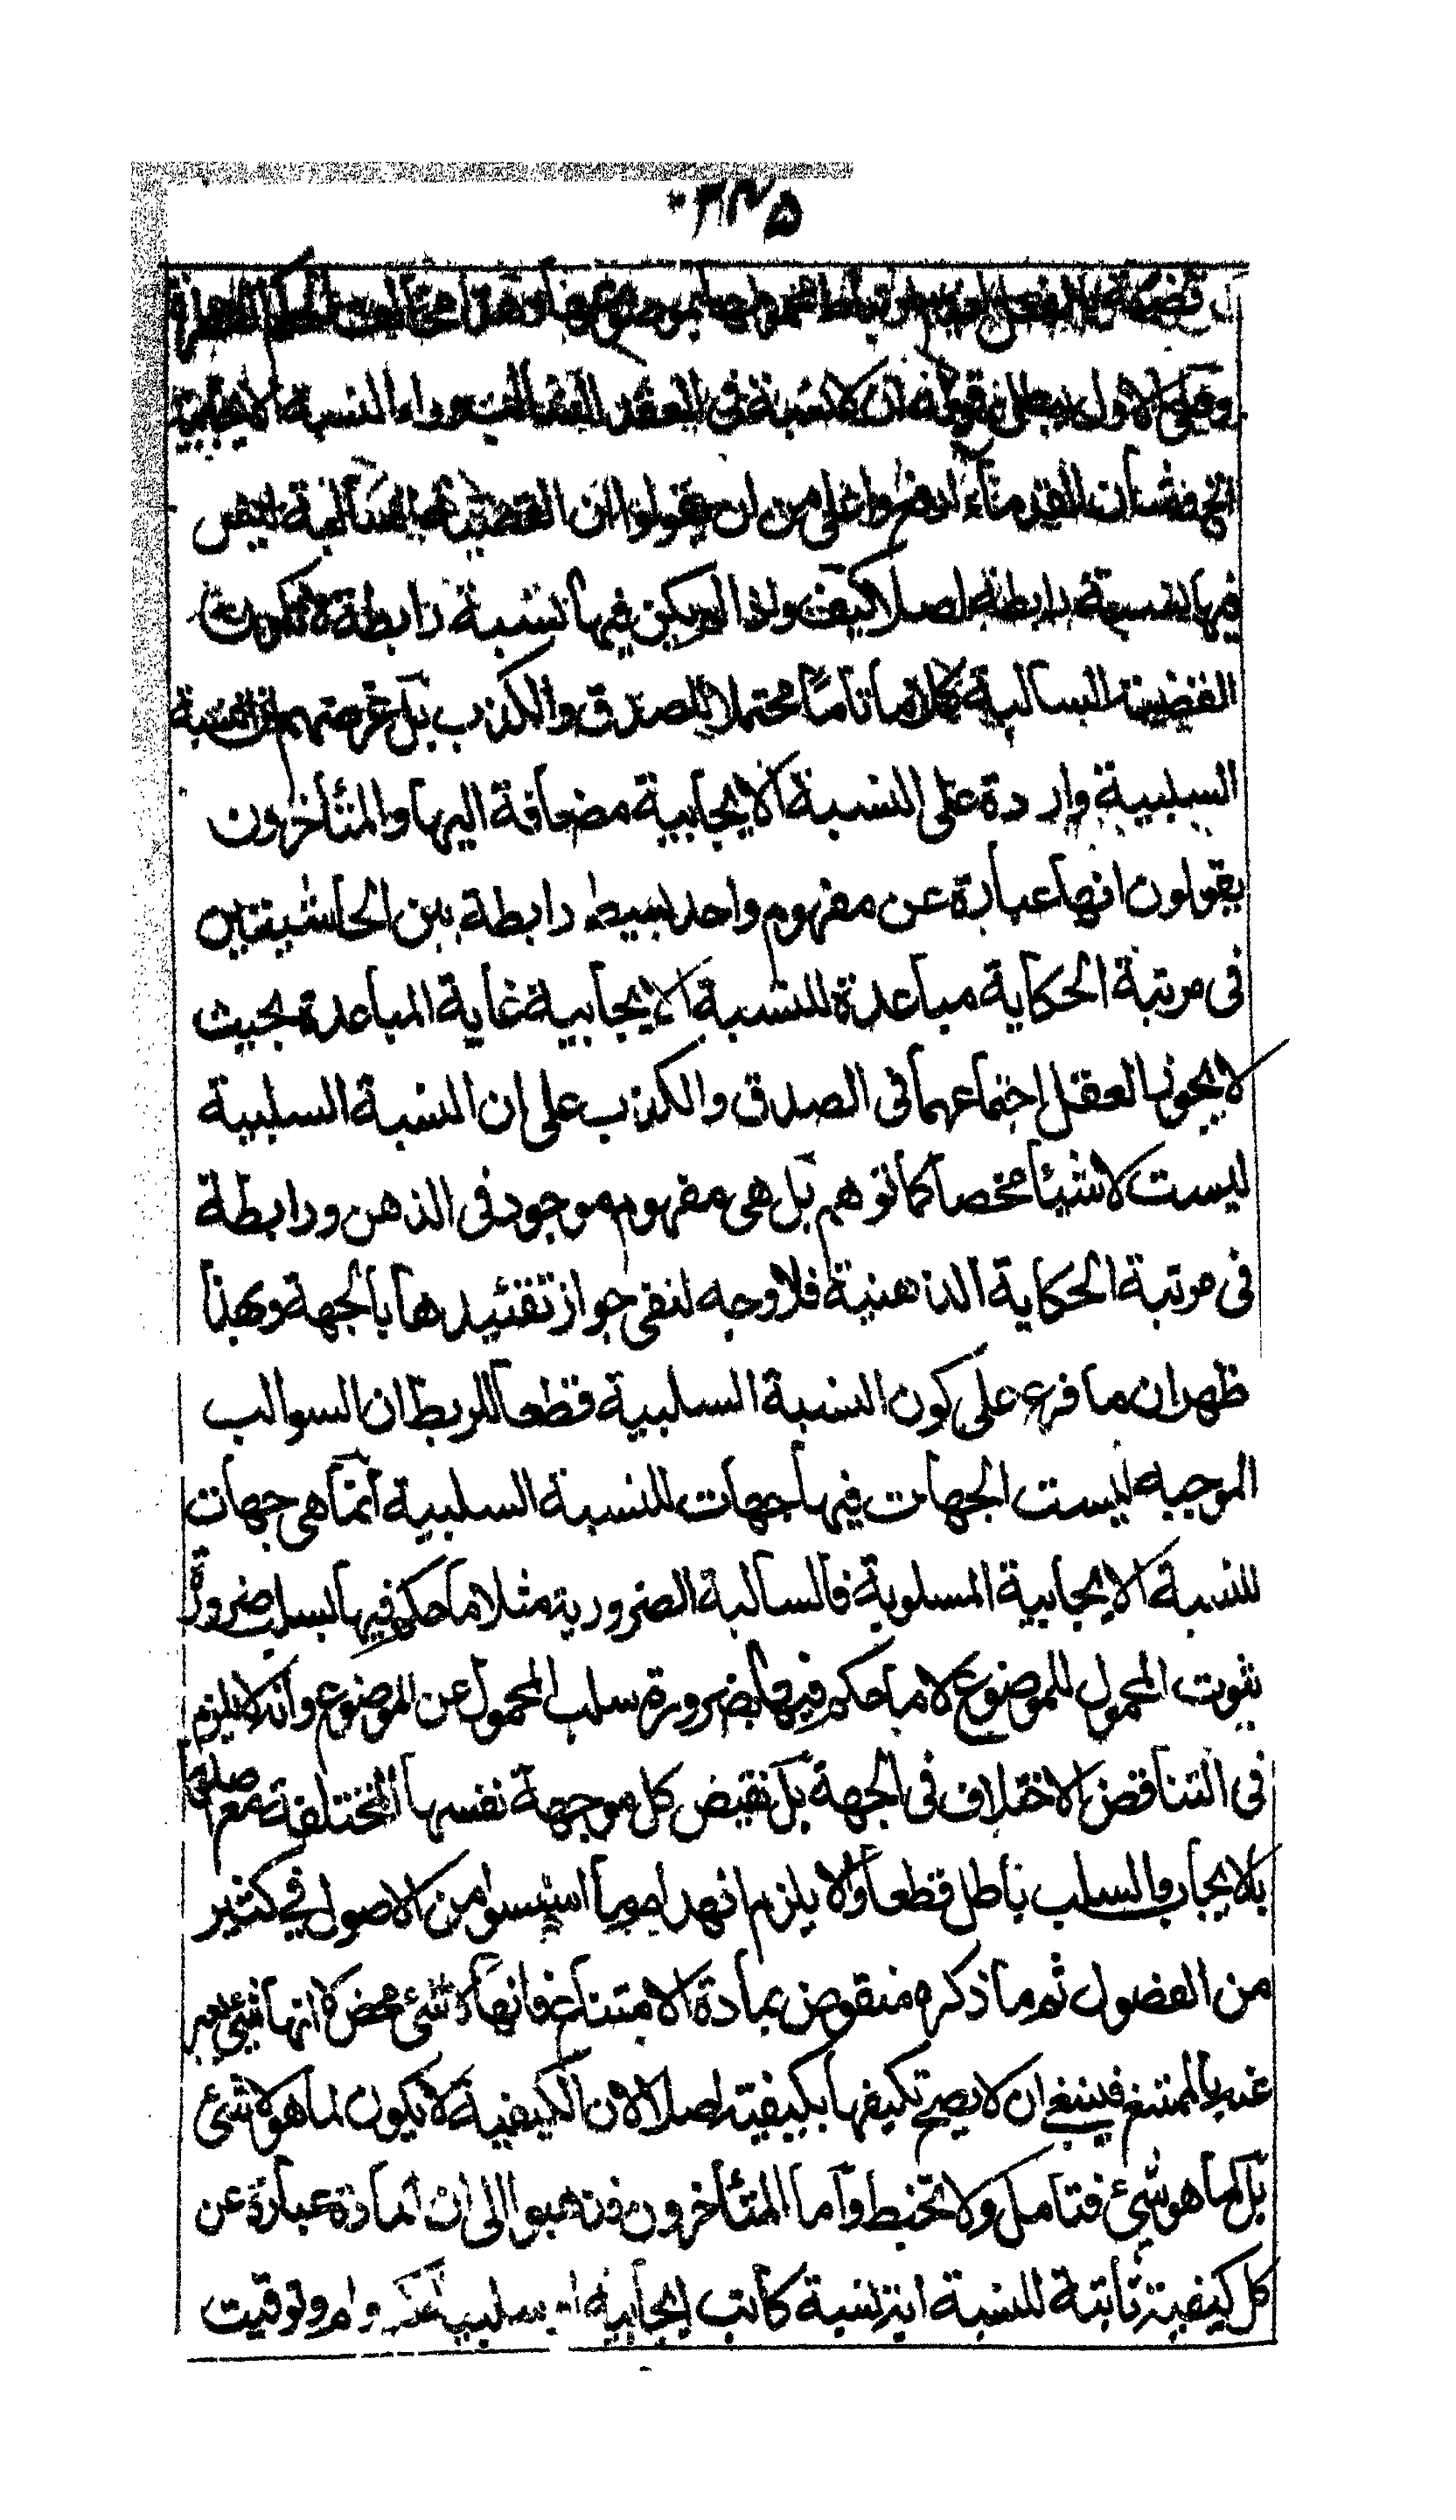 ٣٢٥
وعلى الاول يبطل قوله ان لا نسبة فى العقد السالب وراء النسبة الايجابية
شان القدماء ارفع واعلى من ان يقولوا ان القضية السالبة ليس
فيها نسبة رابطة اصلا كيف ولو لم يكن فيها نسبة رابطة لا تكون
القضية السالبة كلاما تاما محتملا للصدق والكذب بل غرضهم ان النسبة
السلبية واردة على النسبة الايجابية مضافة اليها والمتأخرون
يقولون انها عبارة عن مفهوم واحد بسيط رابطة بين الحاشيتين
فى مرتبة الحكاية مباعدة للنسبة الايجابية غاية المباعدة بحيث
لا يجوز العقل اجتماعهما فى الصدق والكذب على ان النسبة السلبية
ليست لا شيئا محضا كما توهم بل هى مفهوم موجود فى الذهن ورابطة
فى مرتبة الحكاية الذهنية فلا وجه لنفى جواز تقئيدها بالجهة وبهذا
ظهر ان ما فرع على كون النسبة السلبية قطعا للربط ان السوالب
الموجبه ليست الجهات فيها جهات للنسبة السلبية انما هى جهات
للنسبة الايجابية المسلوبة فالسالبة الضرورية مثلا ما حكم فيها بسلب ضرورة
ثبوت المحمول للموضوع لا ما حكم فيها بضرورة سلب المحمول عن الموضوع وانه لا يلزم
فى التناقض الاختلاف فى الجهة بل نقيض كل موجهة نفسها المختلفة مع اصلها
بالايجاب والسلب باطل قطعا والا يلزم انهدام ما اسسوا من الاصول في كثير
من الفصول ثم ما ذكره منقوض بمادة الامتناع فانها لا شئ محض لا انها شئ يعبر
عنه بالممتنع فينبغى ان لا يصح تكيفها بكيفية اصلا لان الكيفية لا يكون لما هو لا شئ
بل لما هو شئ فتامل ولا تخبط واما المتأخرون فذهبوا الى ان المادة عبارة عن
كل كيفية ثابتة للنسبة اية نسبة كانت ايجابية او سلبية من دوام وتوقيت